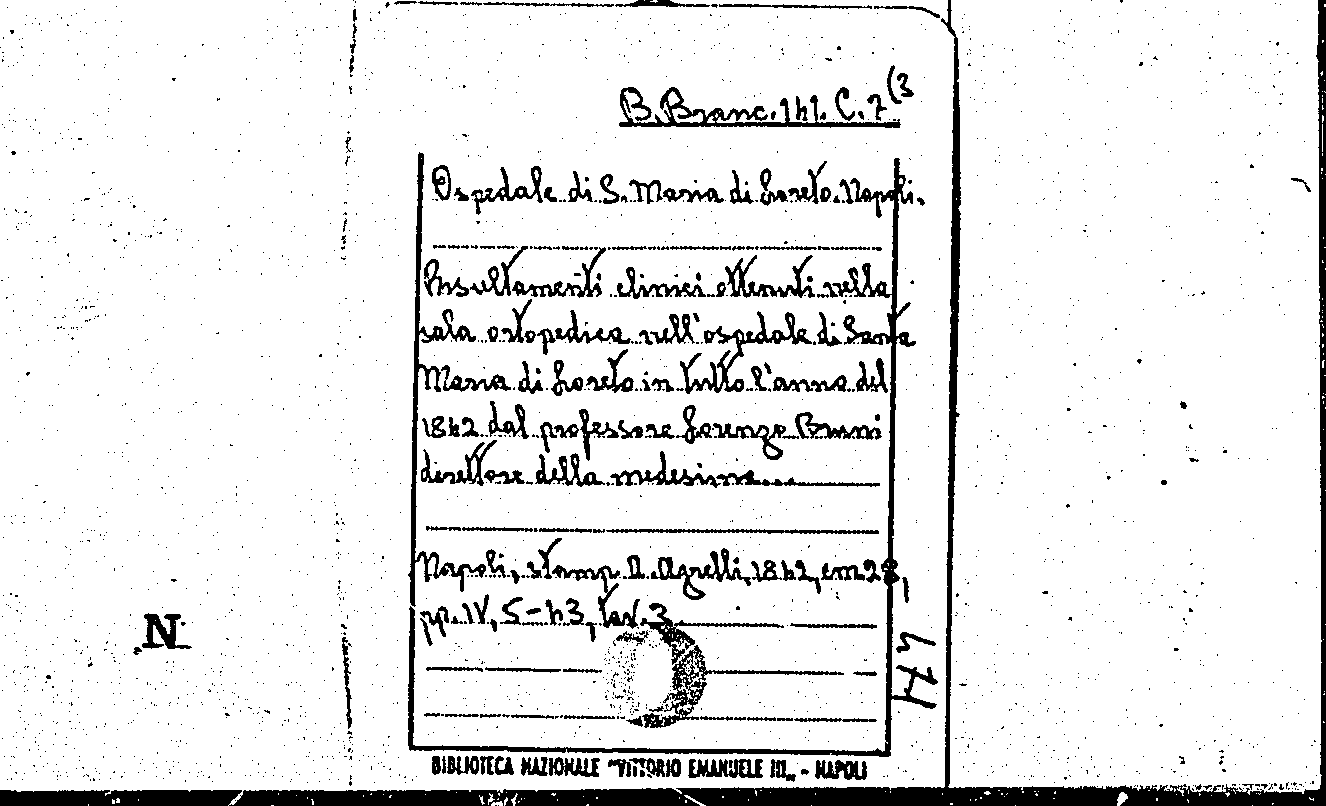 B. Branc. 141. C. 7(3
Ospedale di S. Maria di Loreto. Napoli.
Risultamenti clinici ottenuti nella
sala ortopedica nell'ospedale di Santa
Maria di Loreto in tutto l'anno del
1842 dal professore Lorenzo Bruni
direttore della medesima...
Napoli, stamp. A. Agrelli, 1842, cm 28,
pp. IV, 5-43, tav. 3.
N
BIBLIOTECA NAZIONALE "VITTORIO EMANUELE III„ - NAPOLI